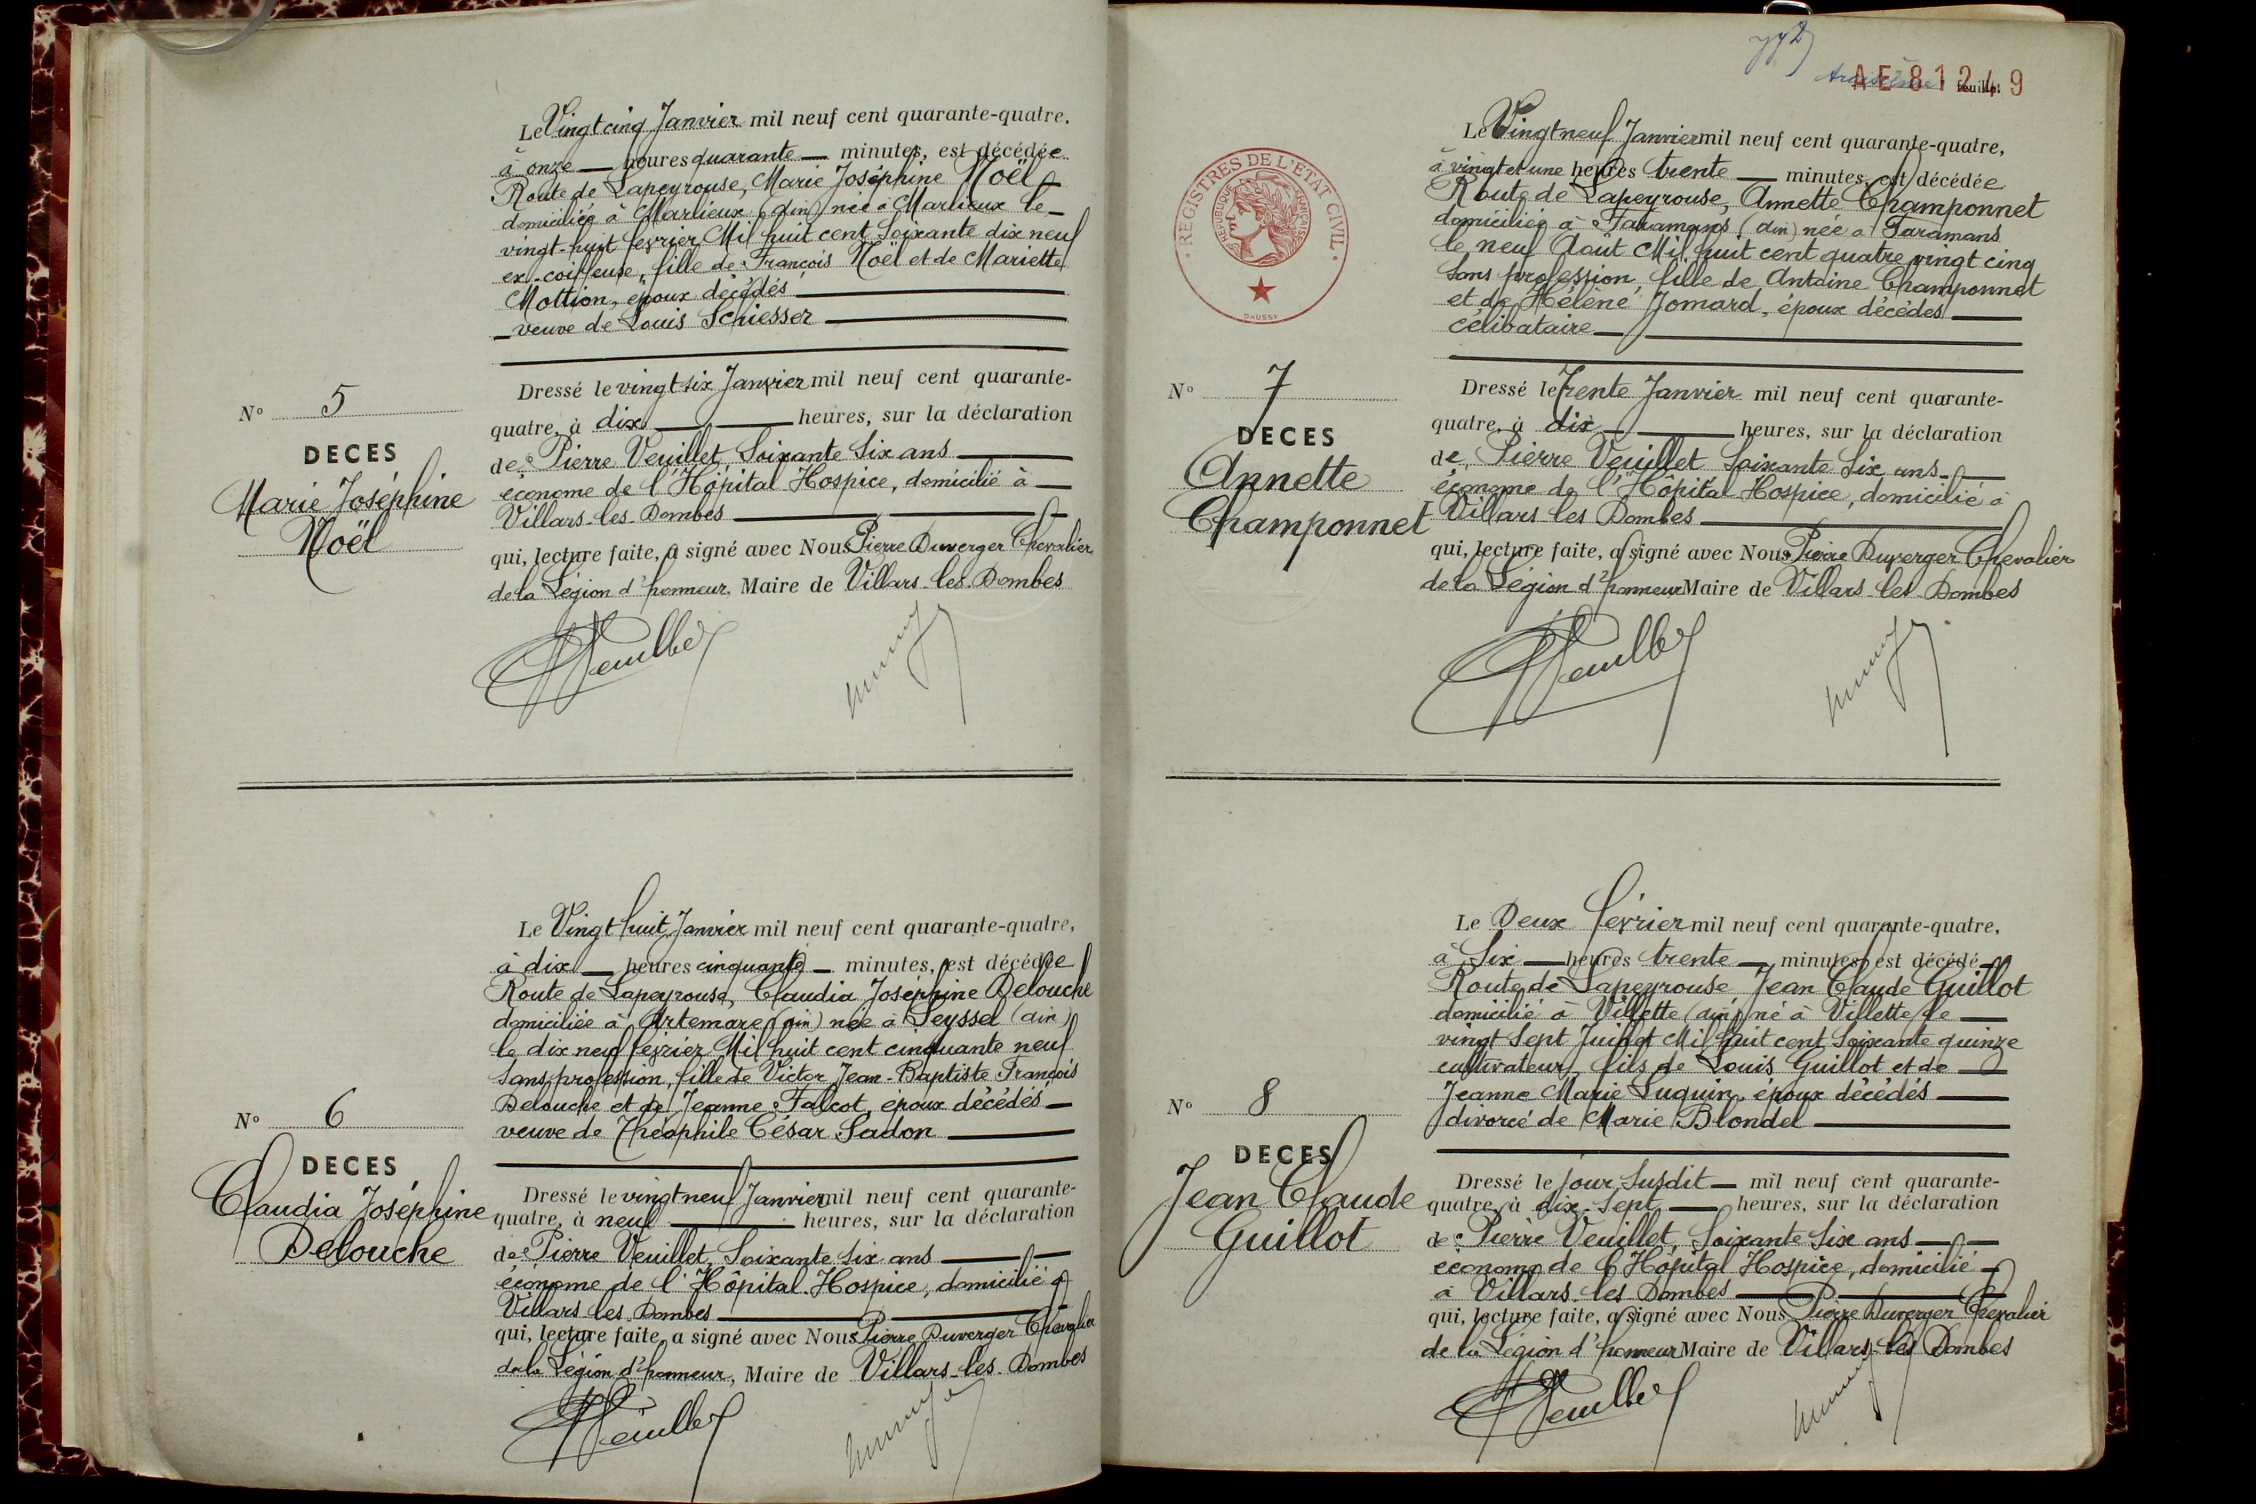 Le Vingt cinq Janvier mil neuf cent quarante-quatre.
à onze heures quarante minutes, est décédée
Route de Lapeyrouse, Marie Joséphine Noël
domiciliée à Marlieux (ain) née à Marlieux le
vingt-huit février Mil huit cent Soixante dix neuf
ex-coiffeuse, fille de François Noël et de Mariette
Mottion, époux décédés
veuve de Louis Schiesser
Dressé le vingt six Janvier mil neuf cent quarante-
quatre, à dix heures, sur la déclaration
de Pierre Veuillet, Soixante Six ans
économe de l'Hôpital Hospice, domicilié à
Villars-les-Dombes
qui, lecture faite, a signé avec Nous Pierre Duverger Chevalier
de la Légion d'honneur, Maire de Villars-les-Dombes
Nº 5
DECES
Marie Joséphine
Noël
Veuillet
Le Vingt huit Janvier mil neuf cent quarante-quatre,
à dix heures cinquante minutes, est décédée
Route de Lapeyrouse, Claudia Joséphine Delouche
domiciliée à Artemare (ain) née à Seyssel (ain)
le dix neuf février Mil huit cent cinquante neuf
Sans profession, fille de Victor Jean-Baptiste François
Delouche et de Jeanne Falcot, époux décédés
veuve de Théophile César Sadon
Dressé le vingt neuf Janvier mil neuf cent quarante-
quatre, à neuf heures, sur la déclaration
de Pierre Veuillet, Soixante six ans
économe de l'Hôpital-Hospice, domicilié à
Villars-les-Dombes
qui, lecture faite, a signé avec Nous Pierre Duverger Chevalier
de la Légion d'honneur, Maire de Villars-les-Dombes
Nº 6
DECES
Claudia Joséphine
Delouche
Veuillet
AE 81249
troisième feuillet
REGISTRES DE L'ÉTAT CIVIL
RÉPUBLIQUE FRANÇAISE
DAUSSY
Le Vingt neuf Janvier mil neuf cent quarante-quatre,
à vingt et une heures trente minutes, est décédée
Route de Lapeyrouse, Annette Champonnet
domiciliée à Faramans (ain) née à Faramans
le neuf Août Mil huit cent quatre vingt cinq
Sans profession, fille de Antoine Champonnet
et de Hélène Jomard, époux décédés
célibataire
Dressé le Trente Janvier mil neuf cent quarante-
quatre, à dix heures, sur la déclaration
de Pierre Veuillet Soixante Six ans
économe de l'Hôpital-Hospice, domicilié à
Villars les Dombes
qui, lecture faite, a signé avec Nous Pierre Duverger Chevalier
de la Légion d'honneur Maire de Villars-les-Dombes
Nº 7
DECES
Annette
Champonnet
Veuillet
Le Deux février mil neuf cent quarante-quatre,
à Six heures trente minutes, est décédé
Route de Lapeyrouse Jean Claude Guillot
domicilié à Villette (ain) né à Villette le
vingt Sept Juillet Mil huit cent Soixante quinze
cultivateur, fils de Louis Guillot et de
Jeanne Marie Luguin, époux décédés
divorcé de Marie Blondel
Dressé le jour Susdit mil neuf cent quarante-
quatre, à dix-Sept heures, sur la déclaration
de Pierre Veuillet, Soixante Six ans
économe de l'Hôpital Hospice, domicilié
à Villars-les-Dombes
qui, lecture faite, a signé avec Nous Pierre Duverger Chevalier
de la Légion d'honneur Maire de Villars-les Dombes
Nº 8
DECES
Jean Claude
Guillot
Veuillet